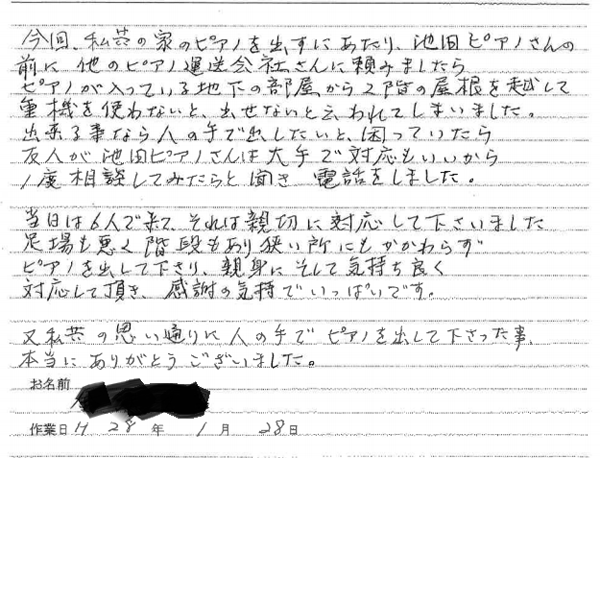 今回、私共の家のピアノを出すにあたり、池田ピアノさんの
前に他のピアノ運送会社さんに頼みましたら
ピアノが入っている地下の部屋から2階の屋根を越して
重機を使わないと、出せないと云われてしまいました。
出来る事なら人の手で出したいと、困っていたら
友人が池田ピアノさんは大手で対応もいいから
1度相談してみたらと聞き 電話をしました。
当日は6人で来て、それは親切に対応して下さいました
足場も悪く階段もあり狭い所にもかかわらず
ピアノを出して下さり、親身にそして気持ち良く
対応して頂き、感謝の気持でいっぱいです。
又私共の思い通りに人の手でピアノを出して下さった事、
本当にありがとうございました。
お名前
作業日 H 28 年 1 月 28 日